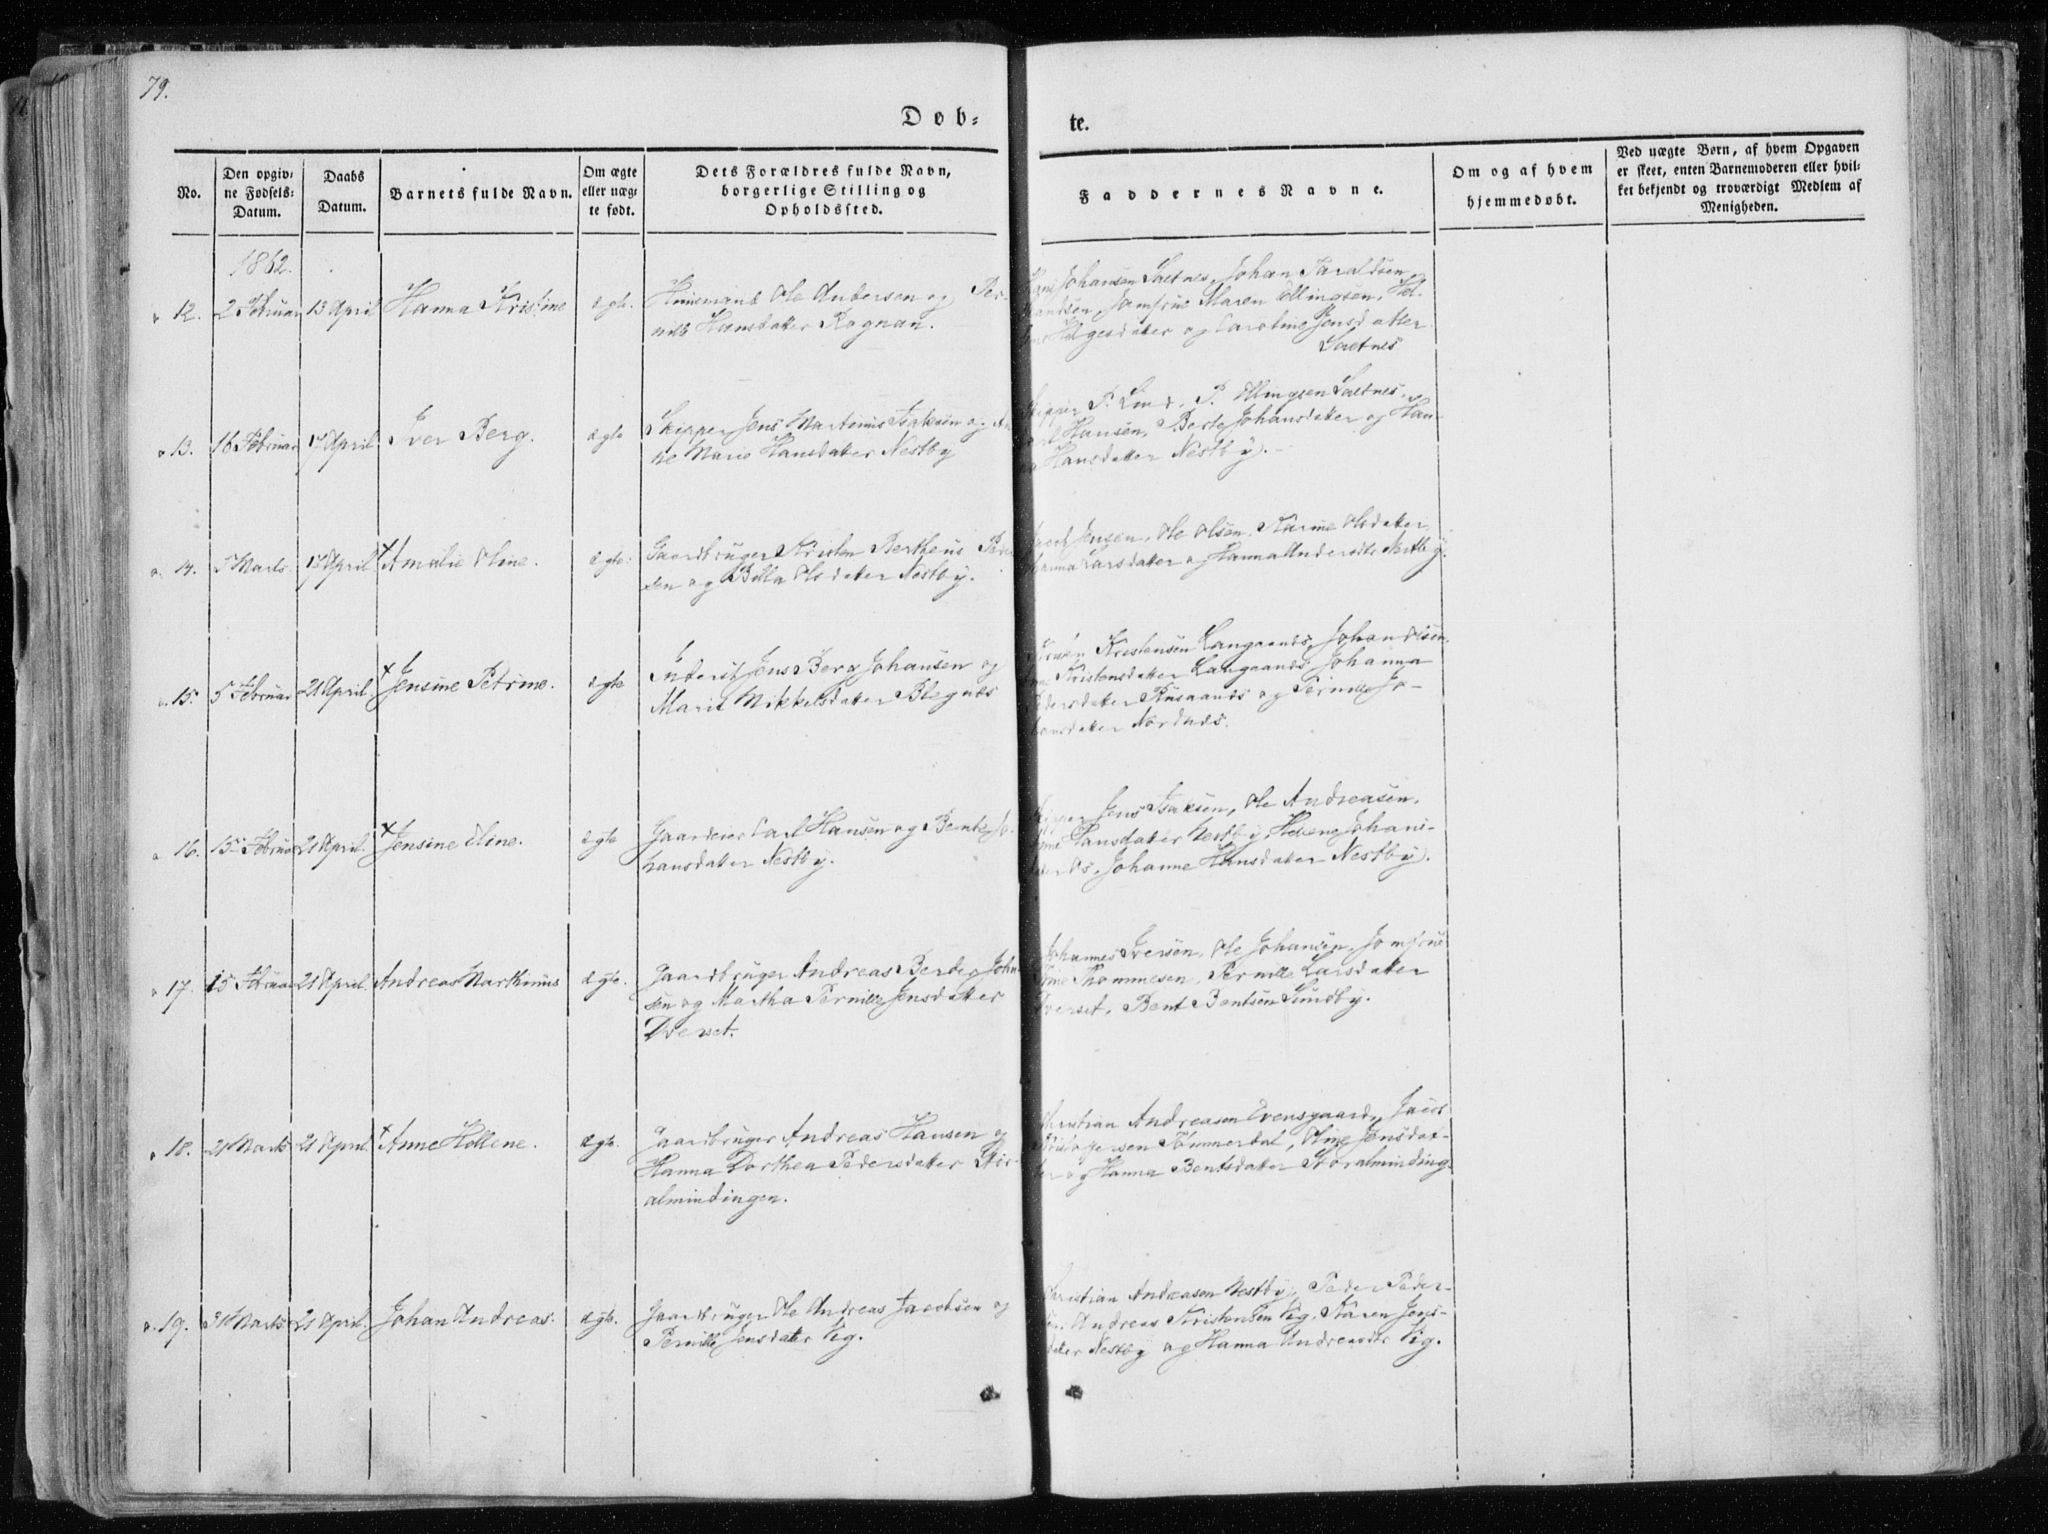 79.
Døb-
te.
No.
Den opgiv-
ne Fødsels-
Datum.
Daabs
Datum.
Barnets fulde Navn.
Om ægte
eller uæg-
te født.
Dets Forældres fulde Navn,
borgerlige Stilling og
Opholdssted.
Faddernes Navne.
Om og af hvem
hjemmedøbt.
Ved uægte Børn, af hvem Opgaven
er skeet, enten Barnemoderen eller hvil-
ket bekjendt og troværdigt Medlem af
Menigheden.
1862.
12. 2 Februar 13 April Hanna Kristine ægte. Huusmand Ole Andersen og Per-
nille Hansdatter Rognan.
Johansen Saltnes, Johan Taraldsen
Jomfrue Maren Ellingsen, Hel-
Helgesdatter og Caroline Jensdatter
Saltnes
13. 16 Februar 17 April Iver Berg. ægte Skipper Jens Martinus Isaksen og An-
ne Marie Hansdatter Nestby
Skipper P. Lund, P. Ellingsen Saltnes,
Carl Hansen, Berte Johansdatter og Han-
na Hansdatter Nestby.
14. 5 Marts. 17 April Amalie Oline. ægte. Gaardbruger Kristen Bertheus Peder-
sen og Billa Olsdatter Nestby.
Jacob Jensen, Ole Olsen, Karine Olsdatter,
Hanna Larsdatter og Hanna Andersdtr Nestby.
15. 5 Februar 21 April. Jensine Petrine. ægte Inderst Jens Berg Johansen og
Marit Mikkelsdatter Blegnæs
Kristensen Langaands, Johan Olsen,
Kristensdatter Langaands, Johanna
Pedersdatter Rusaands og Pernille Jo-
hansdatter Nordnæs.
16. 15 Februar 21 April. Jensine Oline. ægte Gaardeier Carl Hansen og Bente Jo-
hansdatter Nestby.
Skipper Jens Isaksen, Ole Andreasen,
Hansdatter Nestby, Helene Johans-
datter Os, Johanne Hansdatter Nestby.
17. 15 Februar 21 April. Andreas Marthinus ægte. Gaardbruger Andreas Berteg Johan-
sen og Martha Pernille Jensdatter
Dverset.
Johannes Iversen, Ole Johansen, Jomfrue
Thommesen, Pernille Larsdatter
Dverset, Bent Bentsen Sundby.
18. 21 Marts 21 April. Anne Hellene. ægte. Gaardbruger Andreas Hansen og
Hanna Dorthea Pedersdatter Stor-
almindingen.
Christian Andreasen Evensgaard, Jacob
Kristophersen Tømmerdal, Oline Jensdat-
ter og Hanna Bentsdatter Storalminding.
19. 21 Marts 21 April. Johan Andreas. ægte. Gaardbruger Ole Andreas Jacobsen og
Pernille Jensdatter Vig.
Christian Andreasen Nestby, Peder Peder-
sen, Andreas Kristensen Vig, Karen Jens-
datter Nestby og Hanna Andreasdtr Vig.